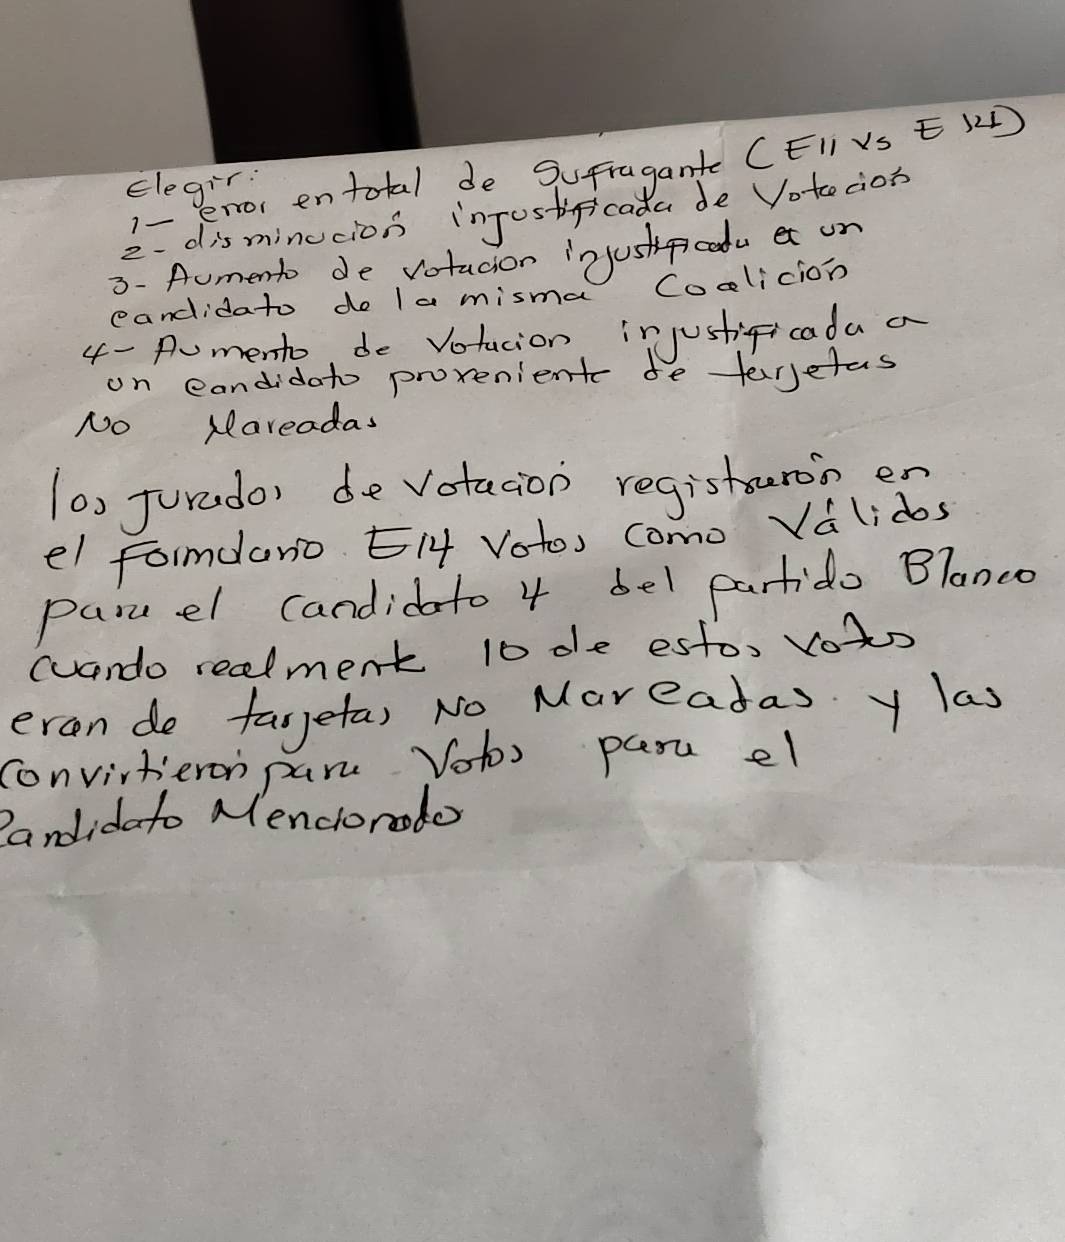 Elegir:
1- error en total de Sufragante (E11 Vs E
2- disminucion injustificada de Votacion
3- Aumento de votacion injustificada a un
candidato de la misma Coalicion
4- Aumento de votacion injustificada a
un candidato proveniente de tarjetas
No Marcadas
los jurados de votacion registraron en
el Formulario E14 votos como Válidos
para el candidato 4 del partido Blanco
cuando realmente 10 de estos votos
eran de tarjetas No Marcadas. y las
Convirtieron para Votos para el
Candidato Mencionado